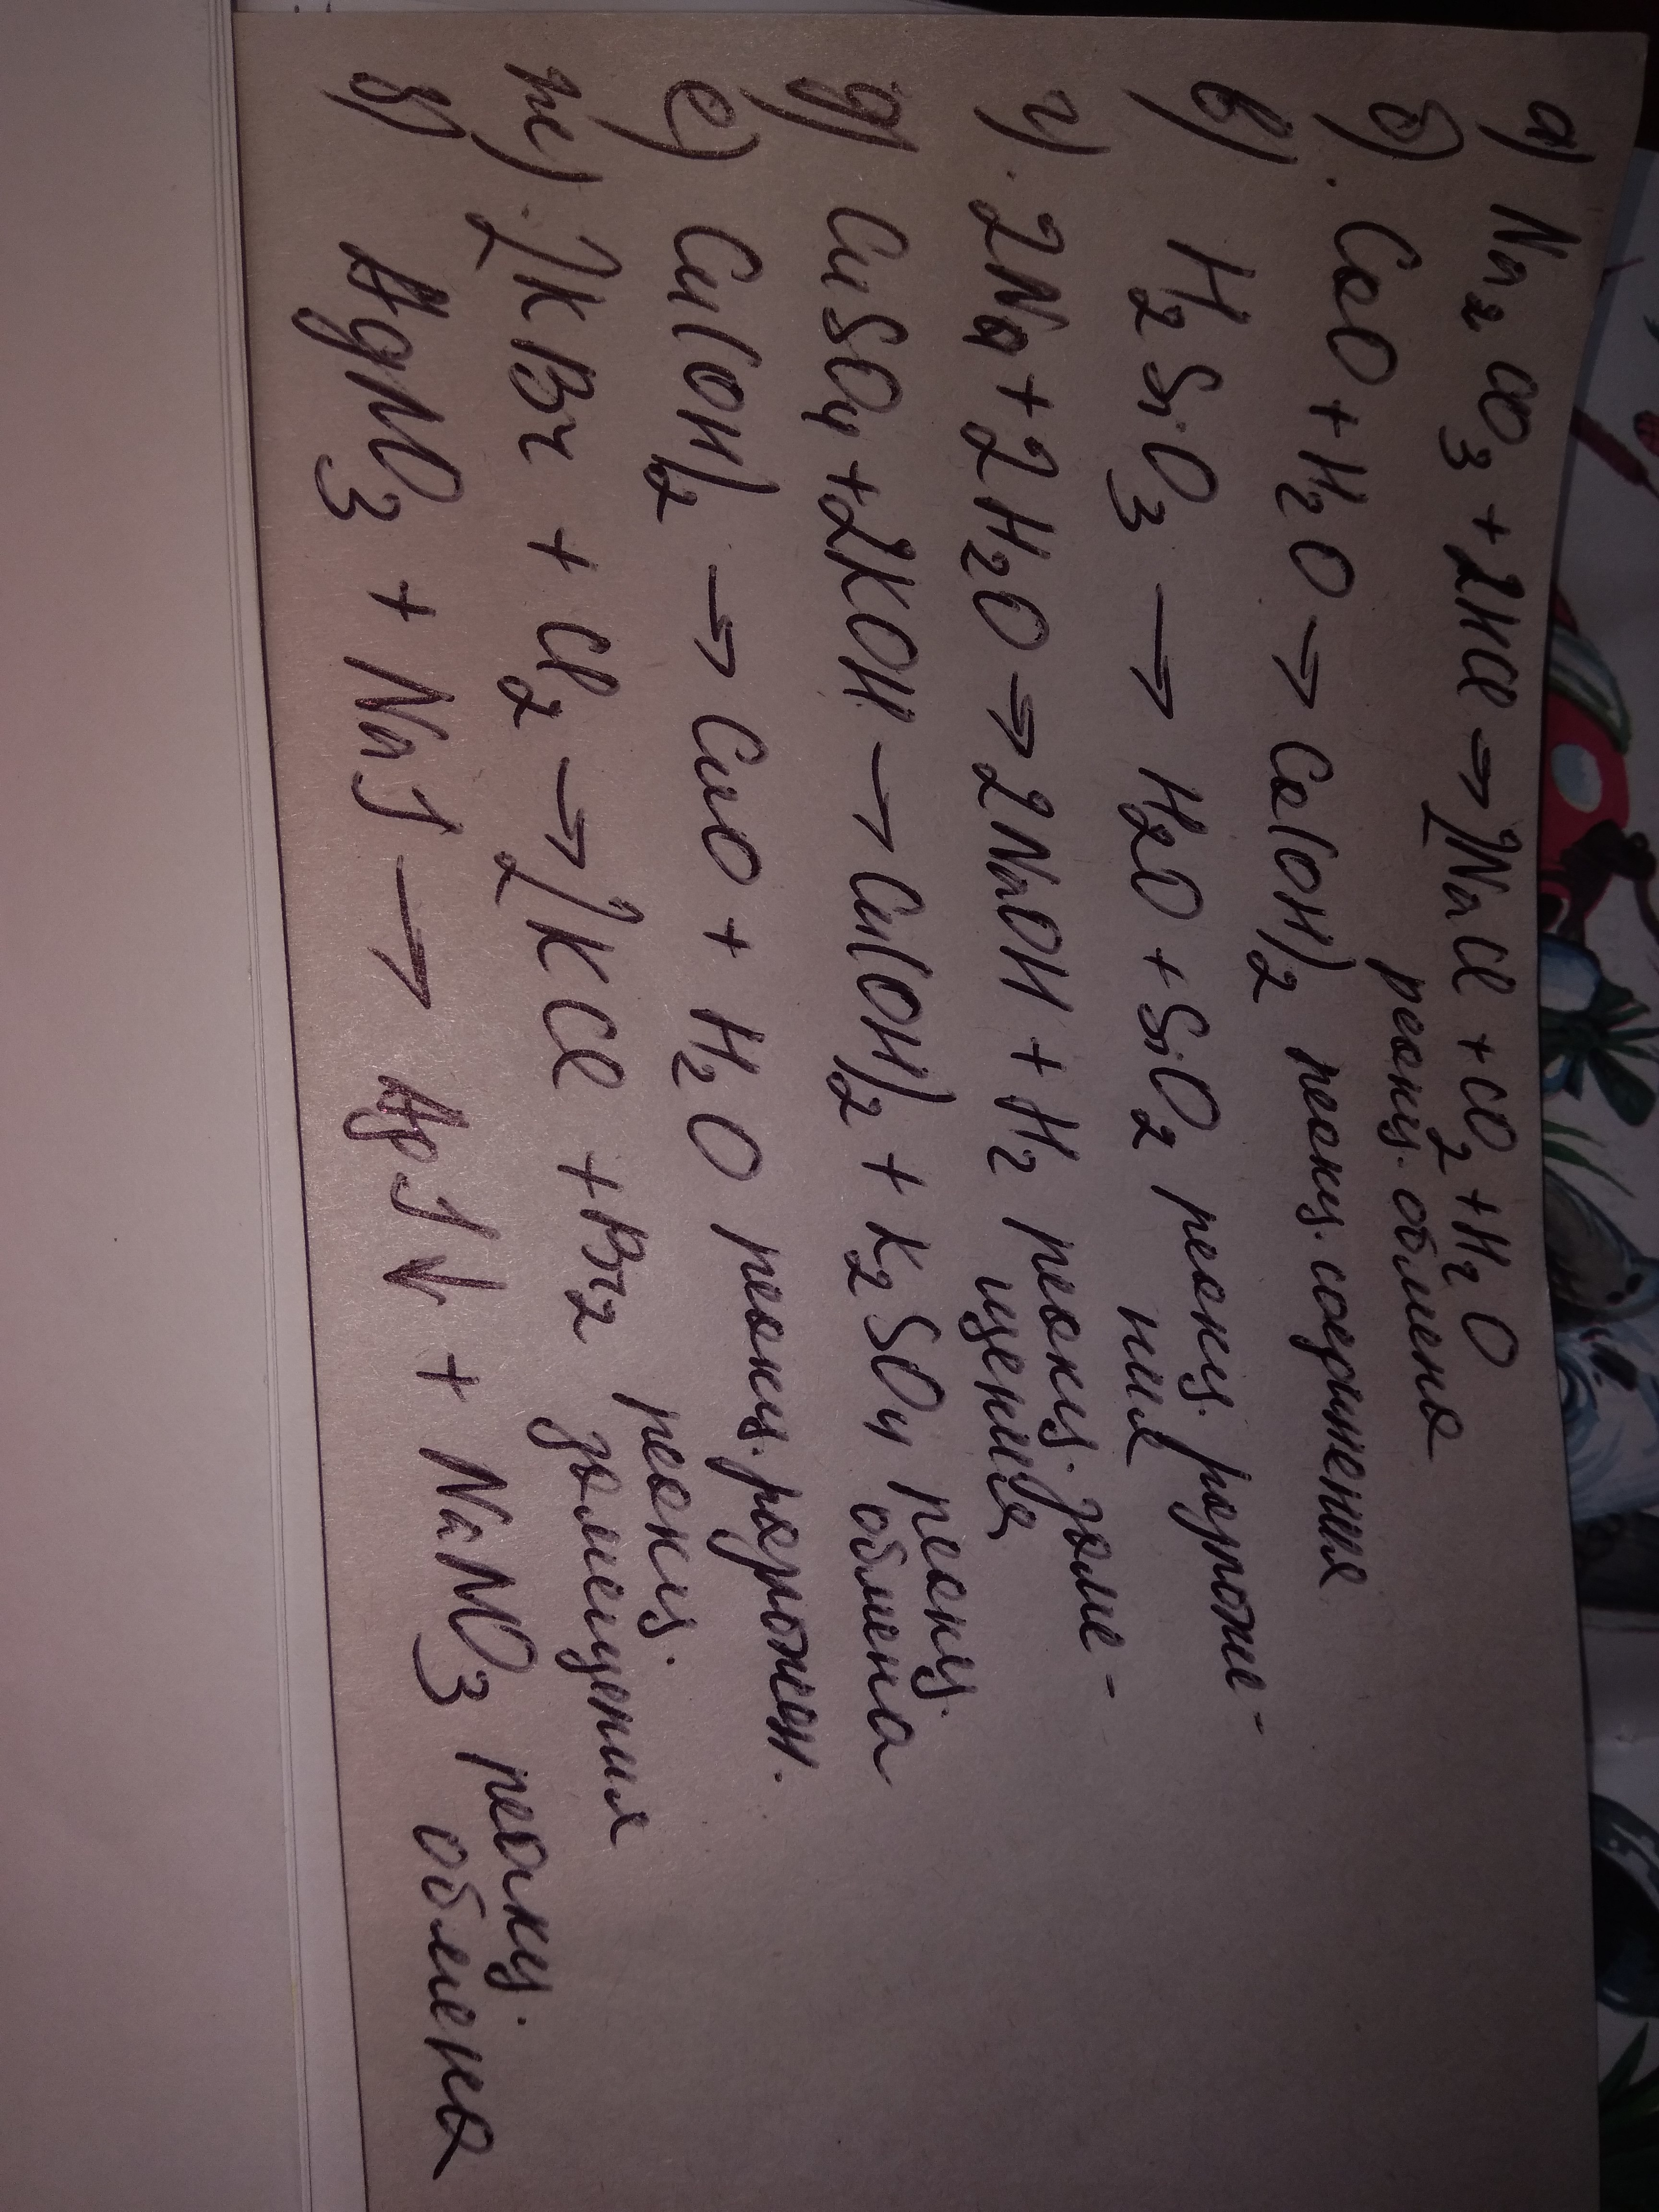 а) Na₂CO₃ + 2HCl → 2NaCl + CO₂ + H₂O
реакц. обмена
б) CaO + H₂O → Ca(OH)₂ реакц. соединения
в) H₂SiO₃ → H₂O + SiO₂ реакц. разложе-
ния
г) 2Na + 2H₂O → 2NaOH + H₂ реакц. заме-
щения
д) CuSO₄ + 2KOH → Cu(OH)₂ + K₂SO₄ реакц.
обмена
е) Cu(OH)₂ → CuO + H₂O реакц. разложен.
же) 2KBr + Cl₂ → 2KCl + Br₂ реакц.
замещения
з) AgNO₃ + NaJ → AgJ↓ + NaNO₃ реакц.
обмена